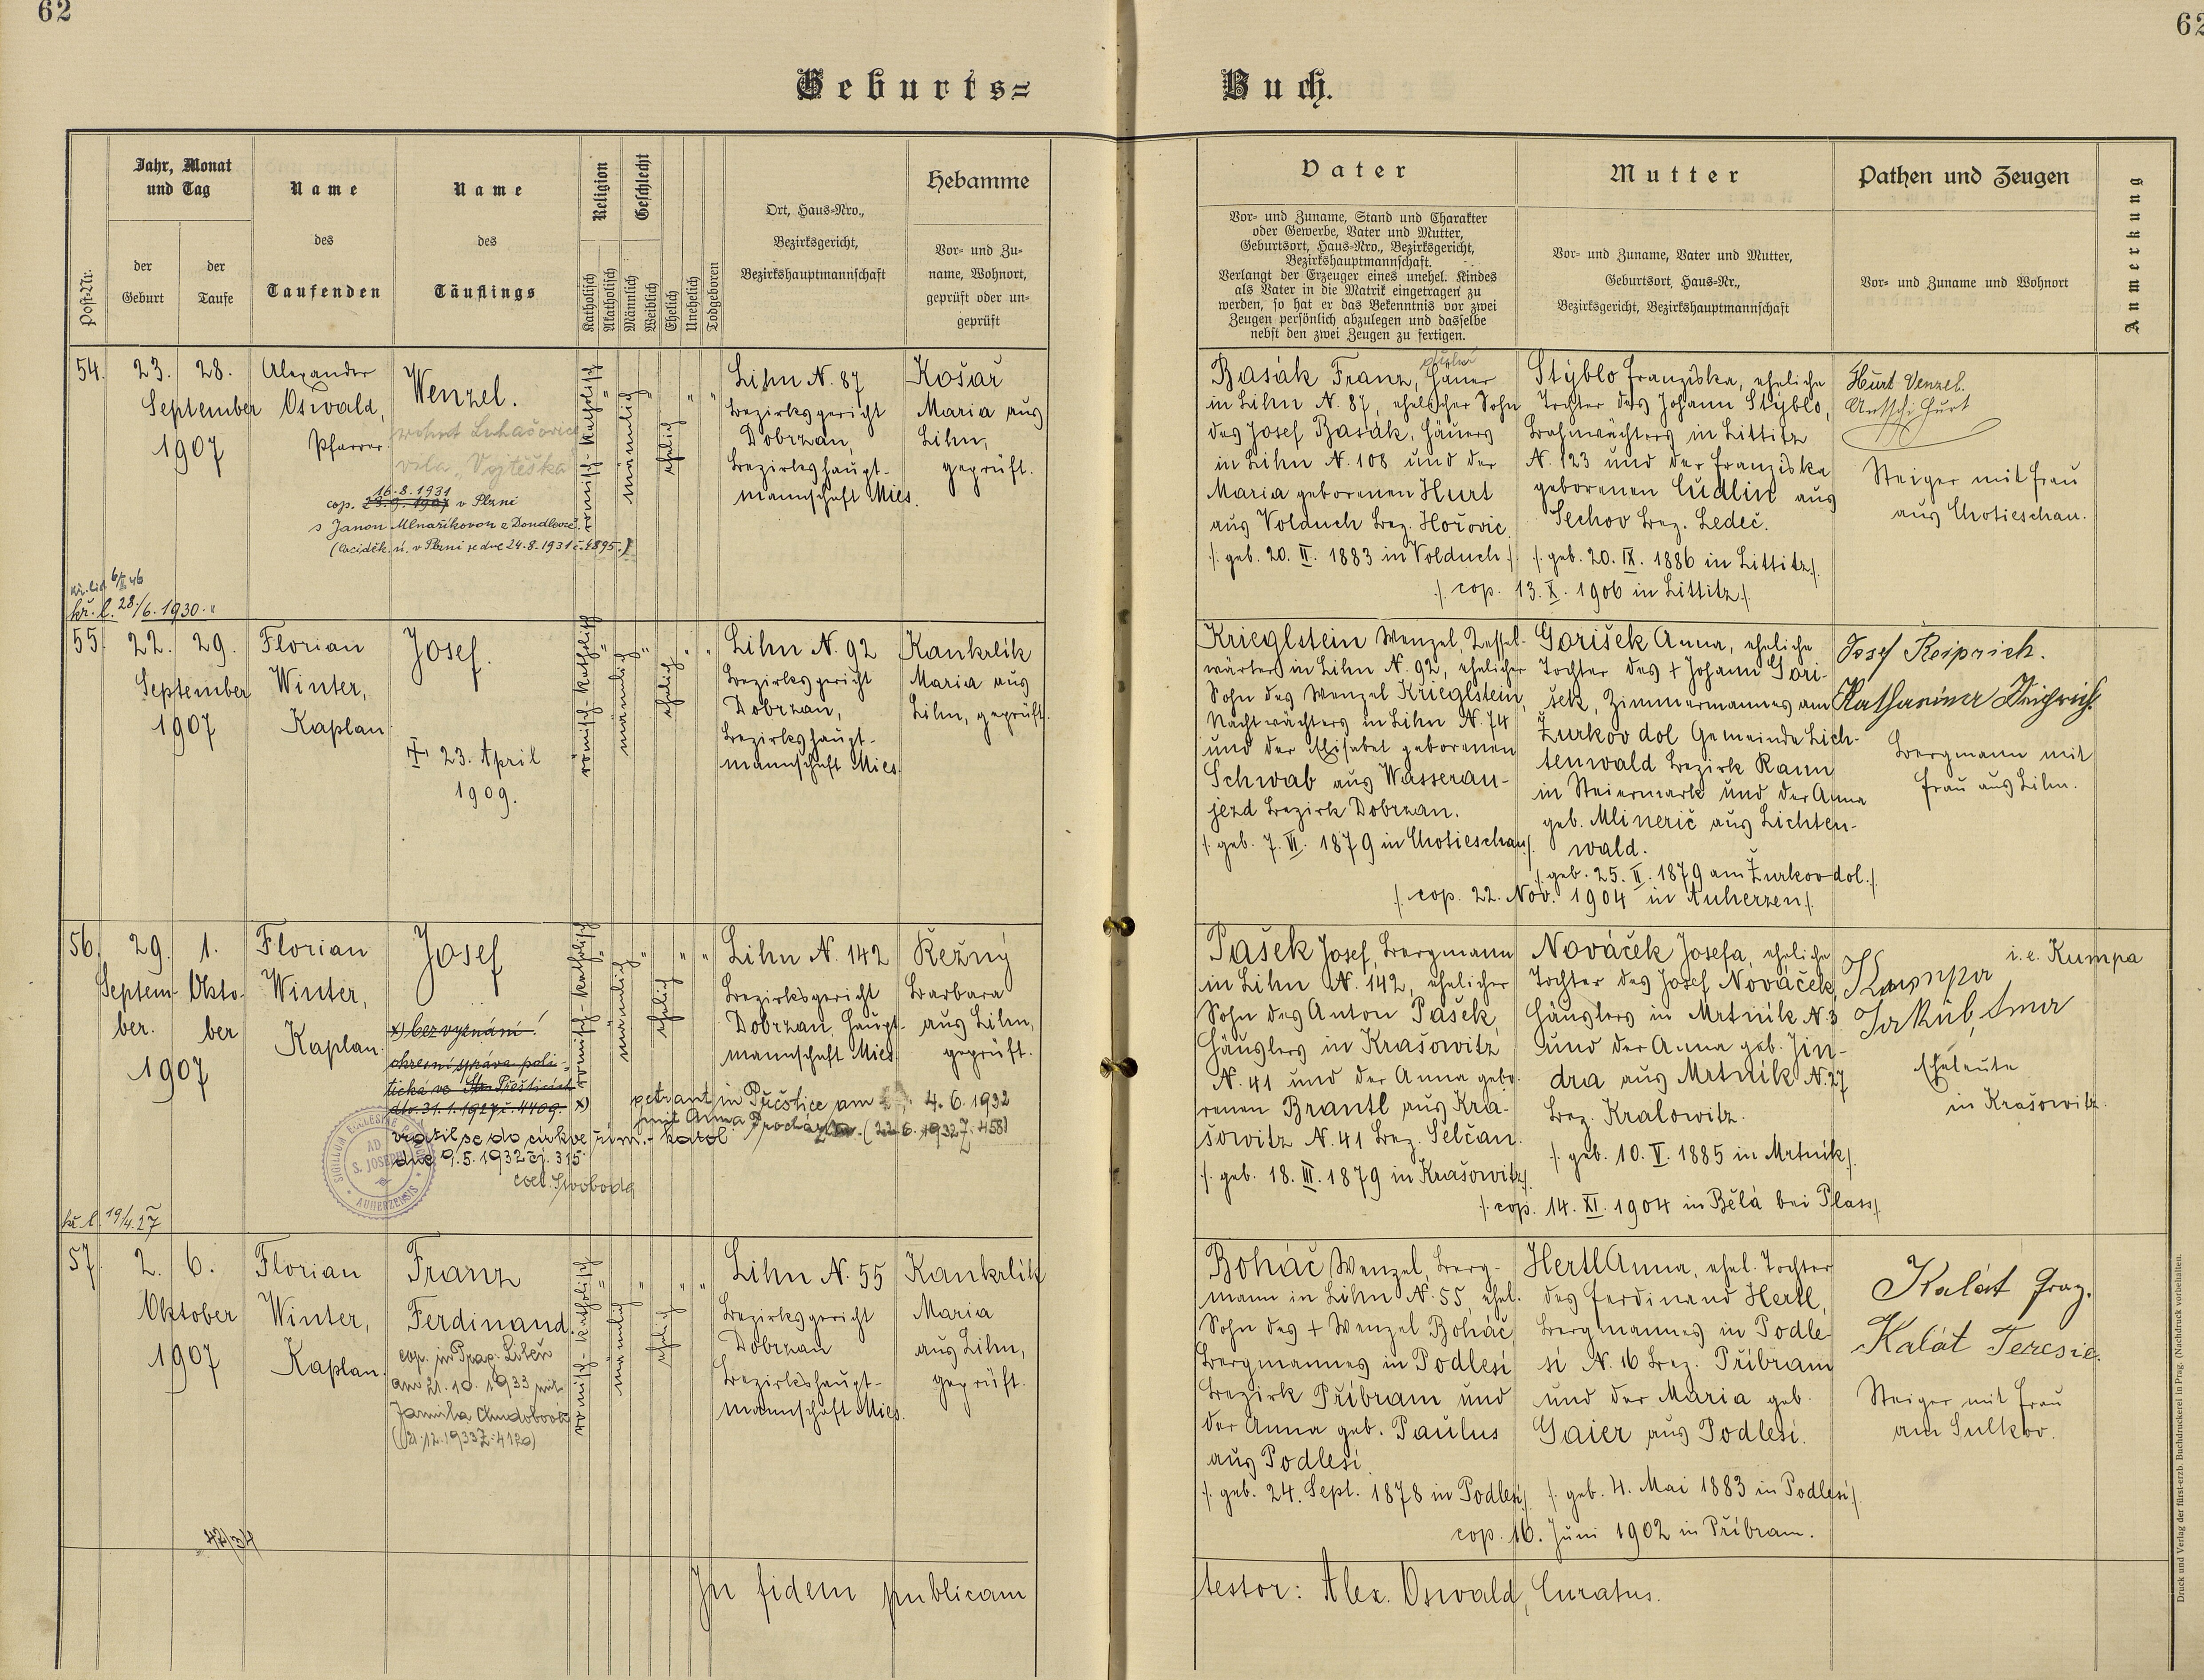 62
62
Geburts=
Buch.
Post-Nr.
Jahr, Monat
und Tag
der
Geburt
der
Taufe
Name
des
Taufenden
Name
des
Täuflings
Religion
Katholisch
Akatholisch
Geschlecht
Männlich
Weiblich
Ehelich
Unehelich
Todgeboren
Ort, Haus-Nro.,
Bezirksgericht,
Bezirkshauptmannschaft
Hebamme
Vor- und Zu-
name, Wohnort,
geprüft oder un-
geprüft
Vater
Vor- und Zuname, Stand und Charakter
oder Gewerbe, Vater und Mutter,
Geburtsort, Haus-Nro., Bezirksgericht,
Bezirkshauptmannschaft.
Verlangt der Erzeuger eines unehel. Kindes
als Vater in die Matrik eingetragen zu
werden, so hat er das Bekenntnis vor zwei
Zeugen persönlich abzulegen und dasselbe
nebst den zwei Zeugen zu fertigen.
Mutter
Vor- und Zuname, Vater und Mutter,
Geburtsort, Haus-Nr.,
Bezirksgericht, Bezirkshauptmannschaft
Pathen und Zeugen
Vor- und Zuname und Wohnort
Anmerkung
54.
23. 28.
September
1907
Alexander
Oswald,
Pfarrer
Wenzel.
wohnt Luhačovice
vila „Vojtěška“
16.8.1931
cop. 23.9.1907 v Plzni
s Janou Mlnaříkovou z Doudlevec.
kř. l. 28./6. 1930.
römisch-katholisch
männlich
ehelich
Lihn N. 87
Bezirksgericht
Dobrzan,
Bezirkshaupt-
mannschaft Mies.
Košař
Maria aus
Lihn,
geprüft.
Basák Franz, Häuer
in Lihn N. 87, ehelicher Sohn
des Josef Basák, Häuers
in Lihn N. 108 und der
Maria geborenen Hurt
aus Volduch Bez. Hořovic
/. geb. 20. II. 1883 in Volduch./
Stýblo Franziska, eheliche
Tochter des Johann Stýblo,
Bahnwächters in Littitz
N. 123 und der Franziska
geborenen Cudlin aus
Sechov Bez. Ledeč.
/. geb. 20. IX. 1886 in Littitz./
/. cop. 13. X. 1906 in Littitz./
Hurt Venzel.
Hurt
Steiger mit Frau
aus Chotieschau.
55.
22. 29.
September
1907
Florian
Winter,
Kaplan
Josef.
23. April
1909.
römisch-katholisch
männlich
ehelich
Lihn N. 92
Bezirksgericht
Dobrzan,
Bezirkshaupt-
mannschaft Mies.
Kankrlík
Maria aus
Lihn, geprüft.
Krieglstein Wenzel, Kessel-
wärter in Lihn N. 92, ehelicher
Sohn des Wenzel Krieglstein,
Nachtwächters in Lihn N. 74
und der Elisabet geborenen
Schwab aus Wasserau-
jezd Bezirk Dobrzan.
/. geb. 7. VI. 1879 in Chotieschau./
Gorišek Anna, eheliche
Tochter des + Johann Gori-
šek, Zimmermannes am
Žurkov dol Gemeinde Lich-
tenwald Bezirk Rann
in Steiermark und der Anna
geb. Mlinerič aus Lichten-
wald.
/. geb. 25. II. 1879 am Žurkov dol./
/. cop. 22. Nov. 1904 in Auherzen./
Josef Reiprich.
Katharina Reiprich.
Bergmann mit
Frau aus Lihn.
56.
29. 1.
Septem- Okto-
ber. ber
1907
Florian
Winter,
Kaplan.
Josef
x) bez vyznání!
okresní správa poli-
tická v Přešticích
dto. 31.1.1927 č. 4409. x)
vrátil se do církve řím.- katol
dne 9.5.1932 čj. 315
coel. Svoboda
SIGILLUM ECCLESIAE
AD
S. JOSEPH
AUHERZENSIS
getraut in Přeštice am 4.6.1932
mit Anna Procházka
kř. l. 19/4.27
römisch-katholisch
männlich
ehelich
Lihn N. 142
Bezirksgericht
Dobrzan, Haupt-
mannschaft Mies.
Režný
Barbara
aus Lihn,
geprüft.
Pašek Josef, Bergmann
in Lihn N. 142, ehelicher
Sohn des Anton Pašek,
Häuslers in Krašowitz
N. 41 und der Anna gebo-
renen Brantl aus Kra-
šowitz N. 41 Bez. Selčan.
/. geb. 18. III. 1879 in Krašowitz./
Nováček Josefa, eheliche
Tochter des Josef Nováček,
Häuslers in Mrtnik N 3
und der Anna geb. Jin-
dra aus Mrtnik N. 27
Bez. Kralowitz.
/. geb. 10. V. 1885 in Mrtnik./
/. cop. 14. XI. 1904 in Bělá bei Plass./
i. e. Kumpa
Kumpa
Jakub,
Eheleute
in Krašowitz.
57.
2. 6.
Oktober
1907
Florian
Winter,
Kaplan.
Franz
Ferdinand.
cop. in Prag-Libeň
am 21. 10. 1933 mit
47/34
römisch-katholisch
männlich
ehelich
Lihn N. 55
Bezirksgericht
Dobrzan
Bezirkshaupt-
mannschaft Mies.
Kankrlík
Maria
aus Lihn,
geprüft.
Boháč Wenzel, Berg-
mann in Lihn N. 55, ehel.
Sohn des + Wenzel Boháč,
Bergmannes in Podlesí
Bezirk Příbram und
der Anna geb. Paulus
aus Podlesí.
/. geb. 24. Sept. 1878 in Podlesí./
Hertl Anna, ehel. Tochter
des Ferdinand Hertl,
Bergmannes in Podle-
sí N. 16 Bez. Příbram
und der Maria geb.
Gaier aus Podlesí.
/. geb. 4. Mai 1883 in Podlesí./
cop. 16. Juni 1902 in Příbram.
Kalát Franz.
Kalát Teresie.
Steiger mit Frau
am Sulkov.
In fidem publicam
testor: Alex. Oswald, Curatus.
Druck und Verlag der fürst-erzb. Buchdruckerei in Prag. (Nachdruck vorbehalten.